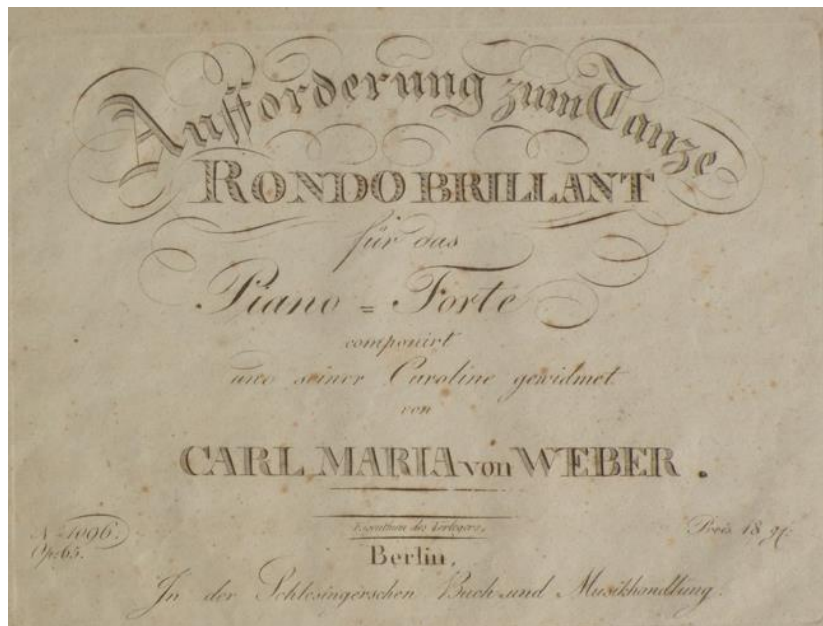 Aufforderung zum Tanze
RONDO BRILLANT
für das
Piano = Forte
componirt
und seiner Caroline gewidmet
von
CARL MARIA von WEBER.
Eigenthum des Verlegers.
No 1096.
Op: 65.
Preis 18 gr:
Berlin,
In der Schlesingerschen Buch und Musikhandlung.